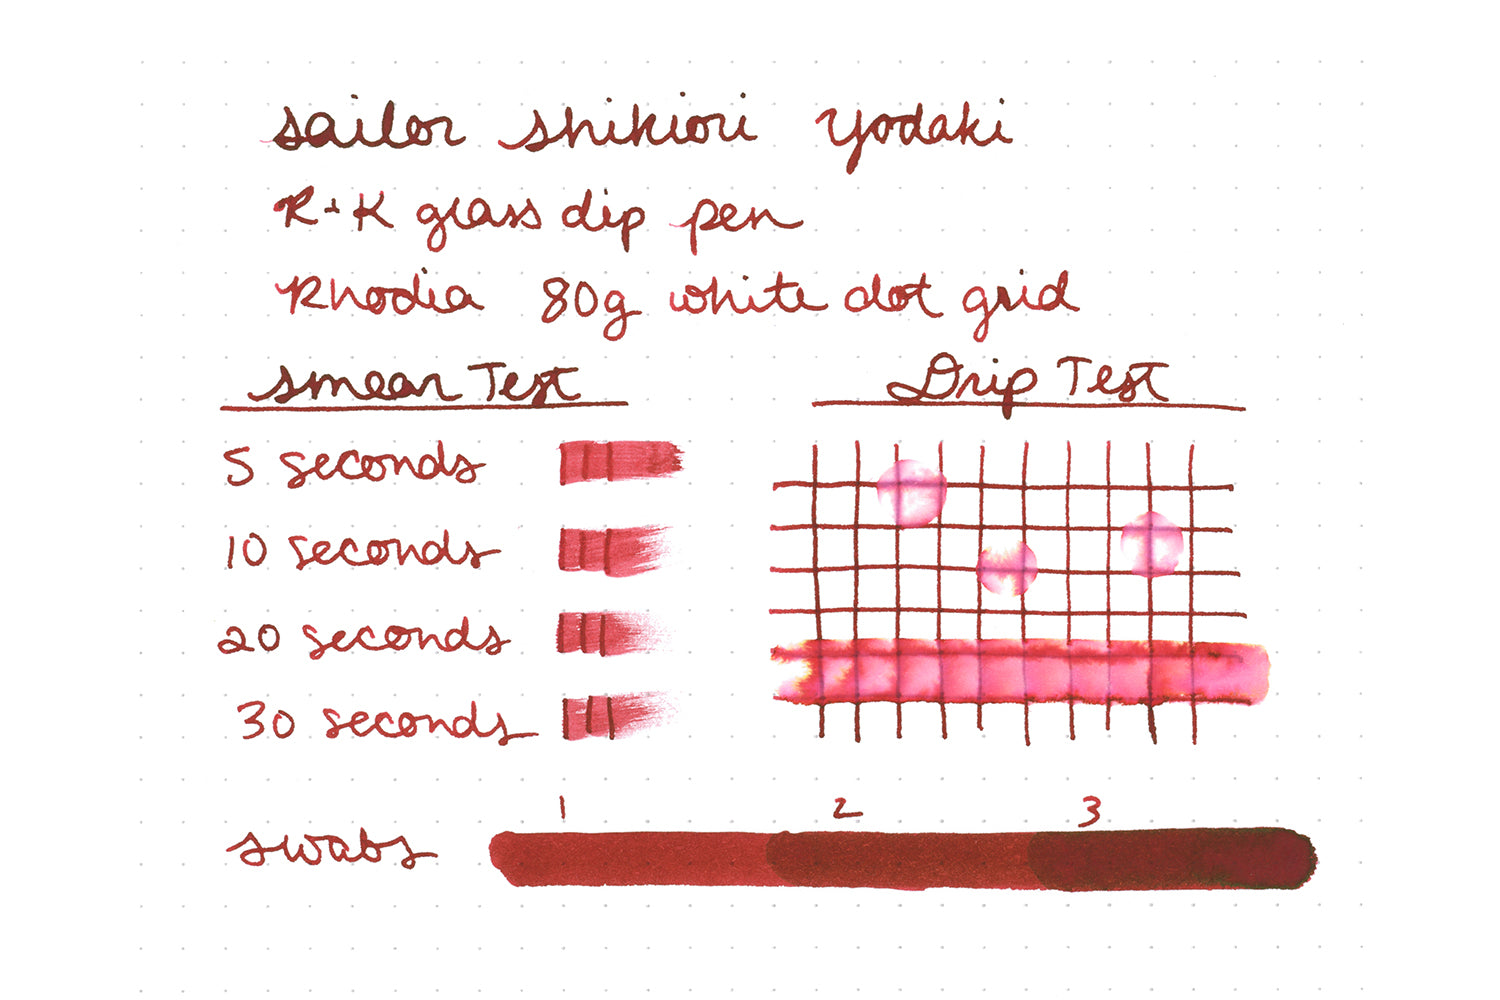 sailor shikiori yodaki
R+K glass dip pen
Rhodia 80g white dot grid
smear Test
Drip Test
5 seconds
10 seconds
20 seconds
30 seconds
1 2 3
swabs